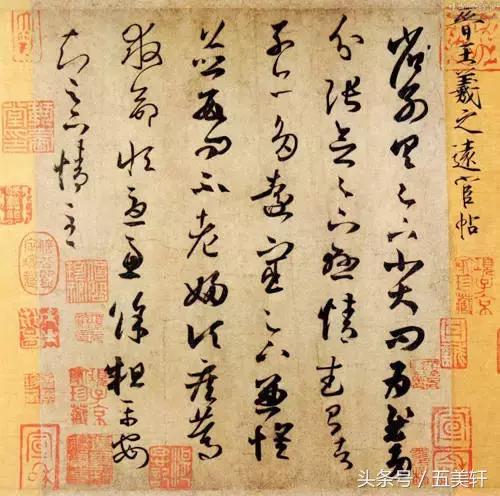 晉王羲之遠宦帖
省別具足下小大問為慰多
分張念足下懸情武昌諸
子亦多遠宦足下兼懷
並數問不老婦頃疾篤
救命恒憂慮餘粗平安
知足下情至
头条号 / 五美轩